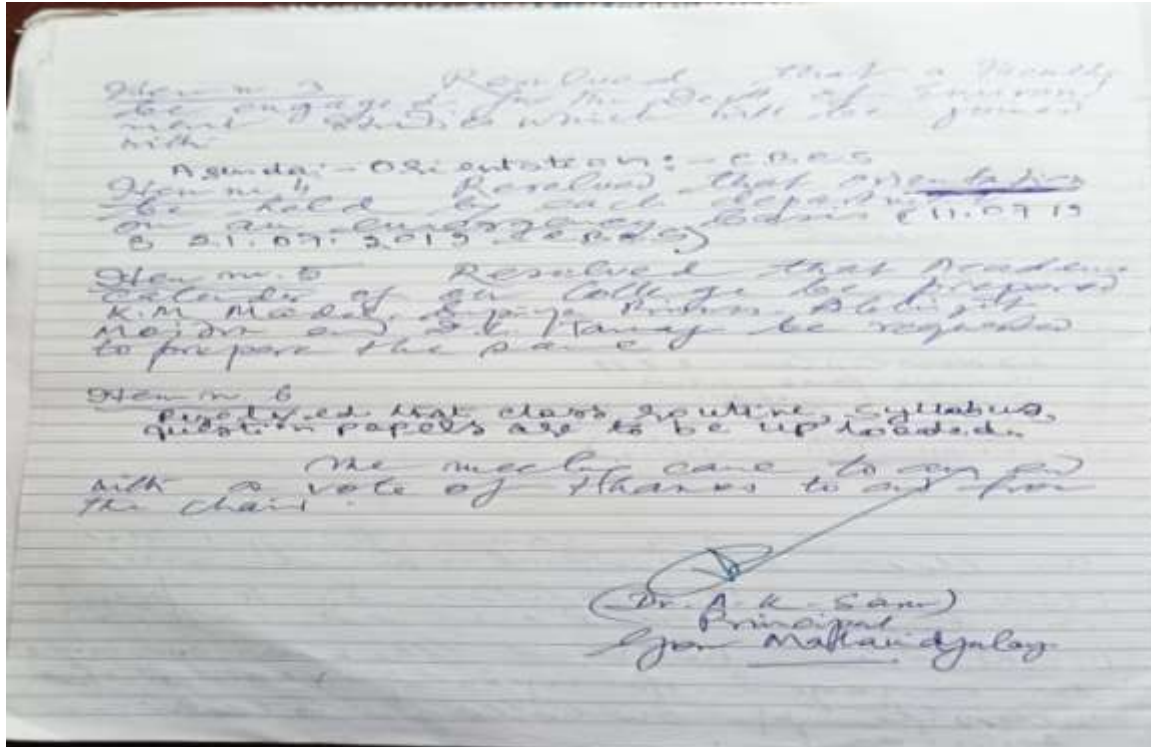 Item no 3 Resolved that a faculty
be engaged for the Dept of Environ
ment Studies which will be
with
Agenda:- Orientation:- CBCS
Item no 4 Resolved that orientation
be held by each department
on an basis 11.07.19
CBCS)
Item no. 5 Resolved that Academic
Calendar of our College be prepared
K.M. Mondal, Abhijit
and be requested
to prepare the same
Item no 6
Resolved that class routine, syllabus,
question papers are to be uploaded.
The meeting came to an end
with a vote of thanks to all from
the chair.
(Dr. A. K. )
Principal
Mahavidyalay